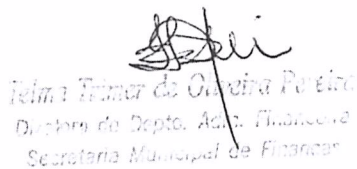 Telma Trimer de Oliveira Pereira
Diretora do Depto. Adm. Financeira
Secretaria Municipal de Finanças